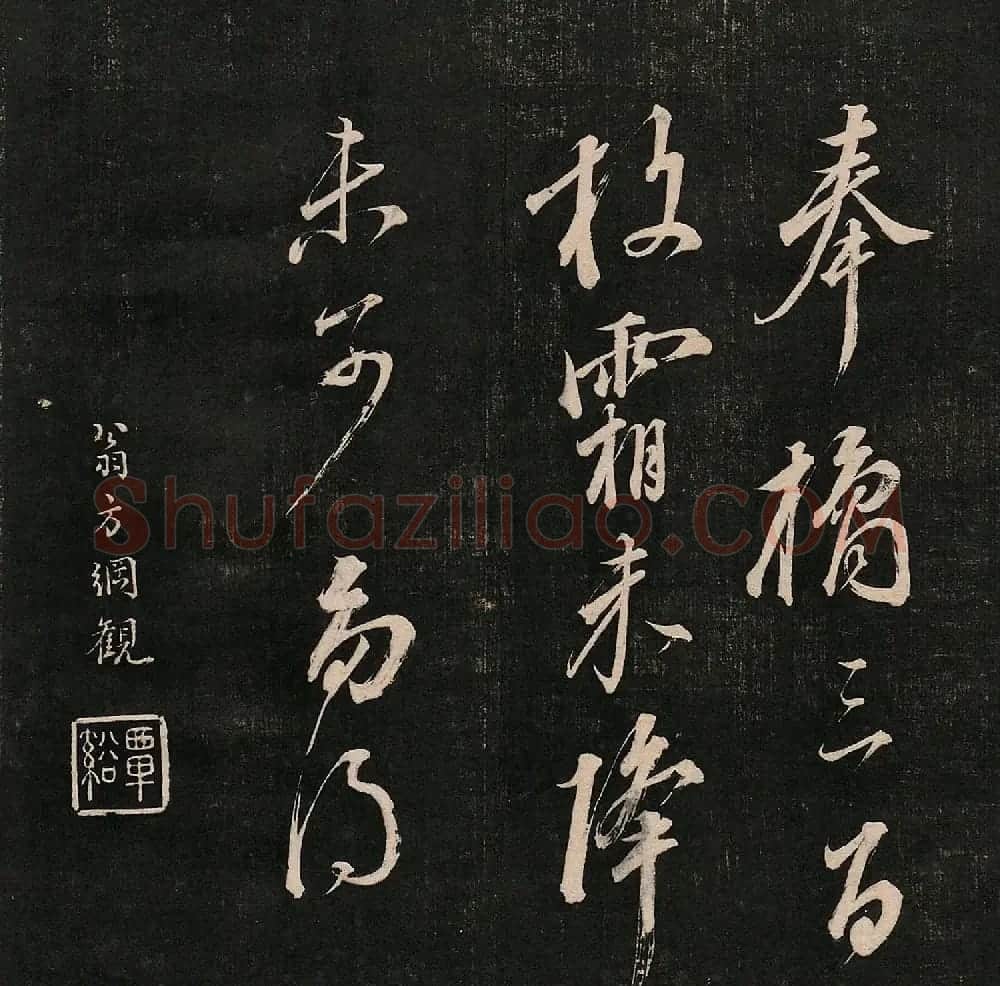 奉橘三百
枚霜未降
未可多得
翁方綱觀
覃谿
Shufaziliao.COM